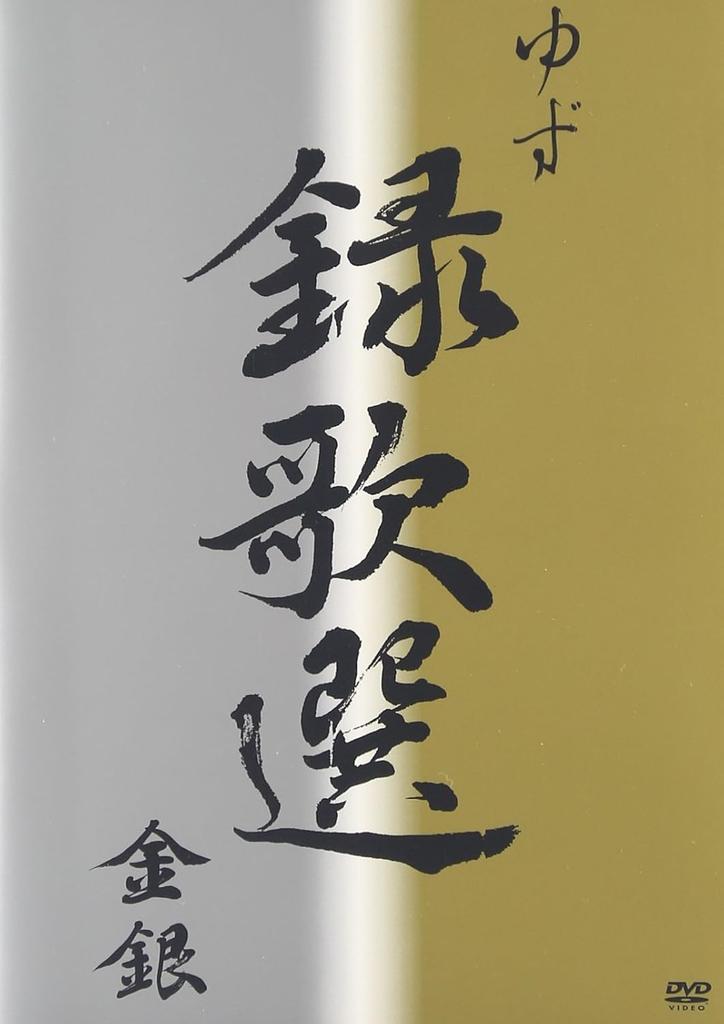 ゆず
録歌選
金銀
DVD
VIDEO